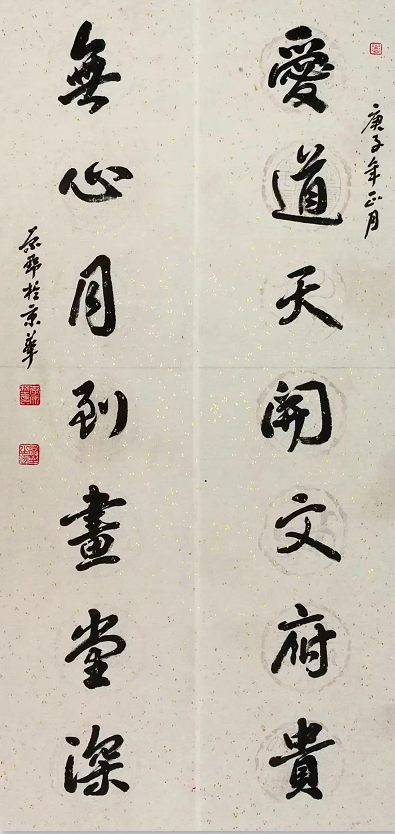 庚子年正月
愛道天開文府貴
無心月到畫堂深
於京華